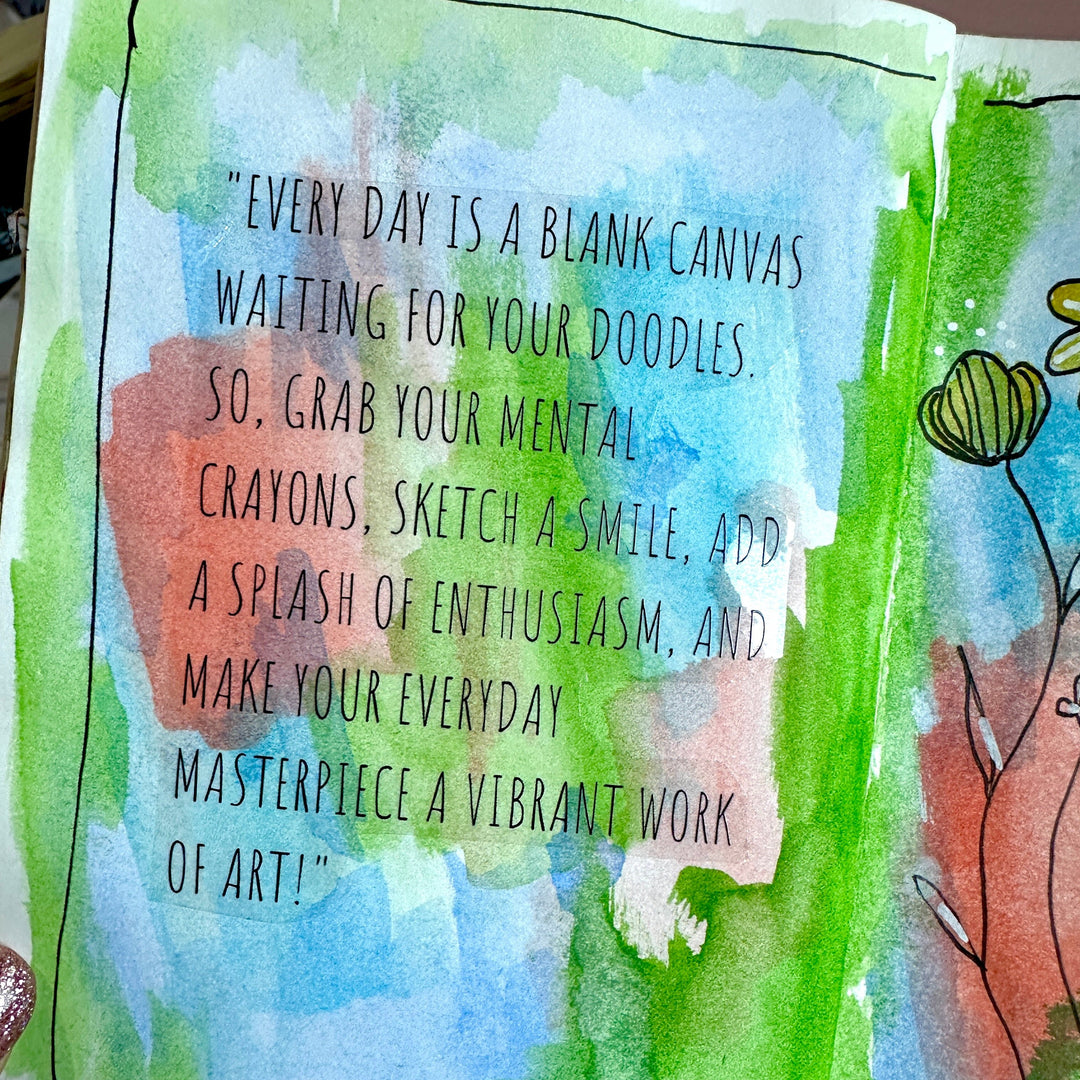 "EVERY DAY IS A BLANK CANVAS
WAITING FOR YOUR DOODLES.
SO, GRAB YOUR MENTAL
CRAYONS, SKETCH A SMILE, ADD
A SPLASH OF ENTHUSIASM, AND
MAKE YOUR EVERYDAY
MASTERPIECE A VIBRANT WORK
OF ART!"